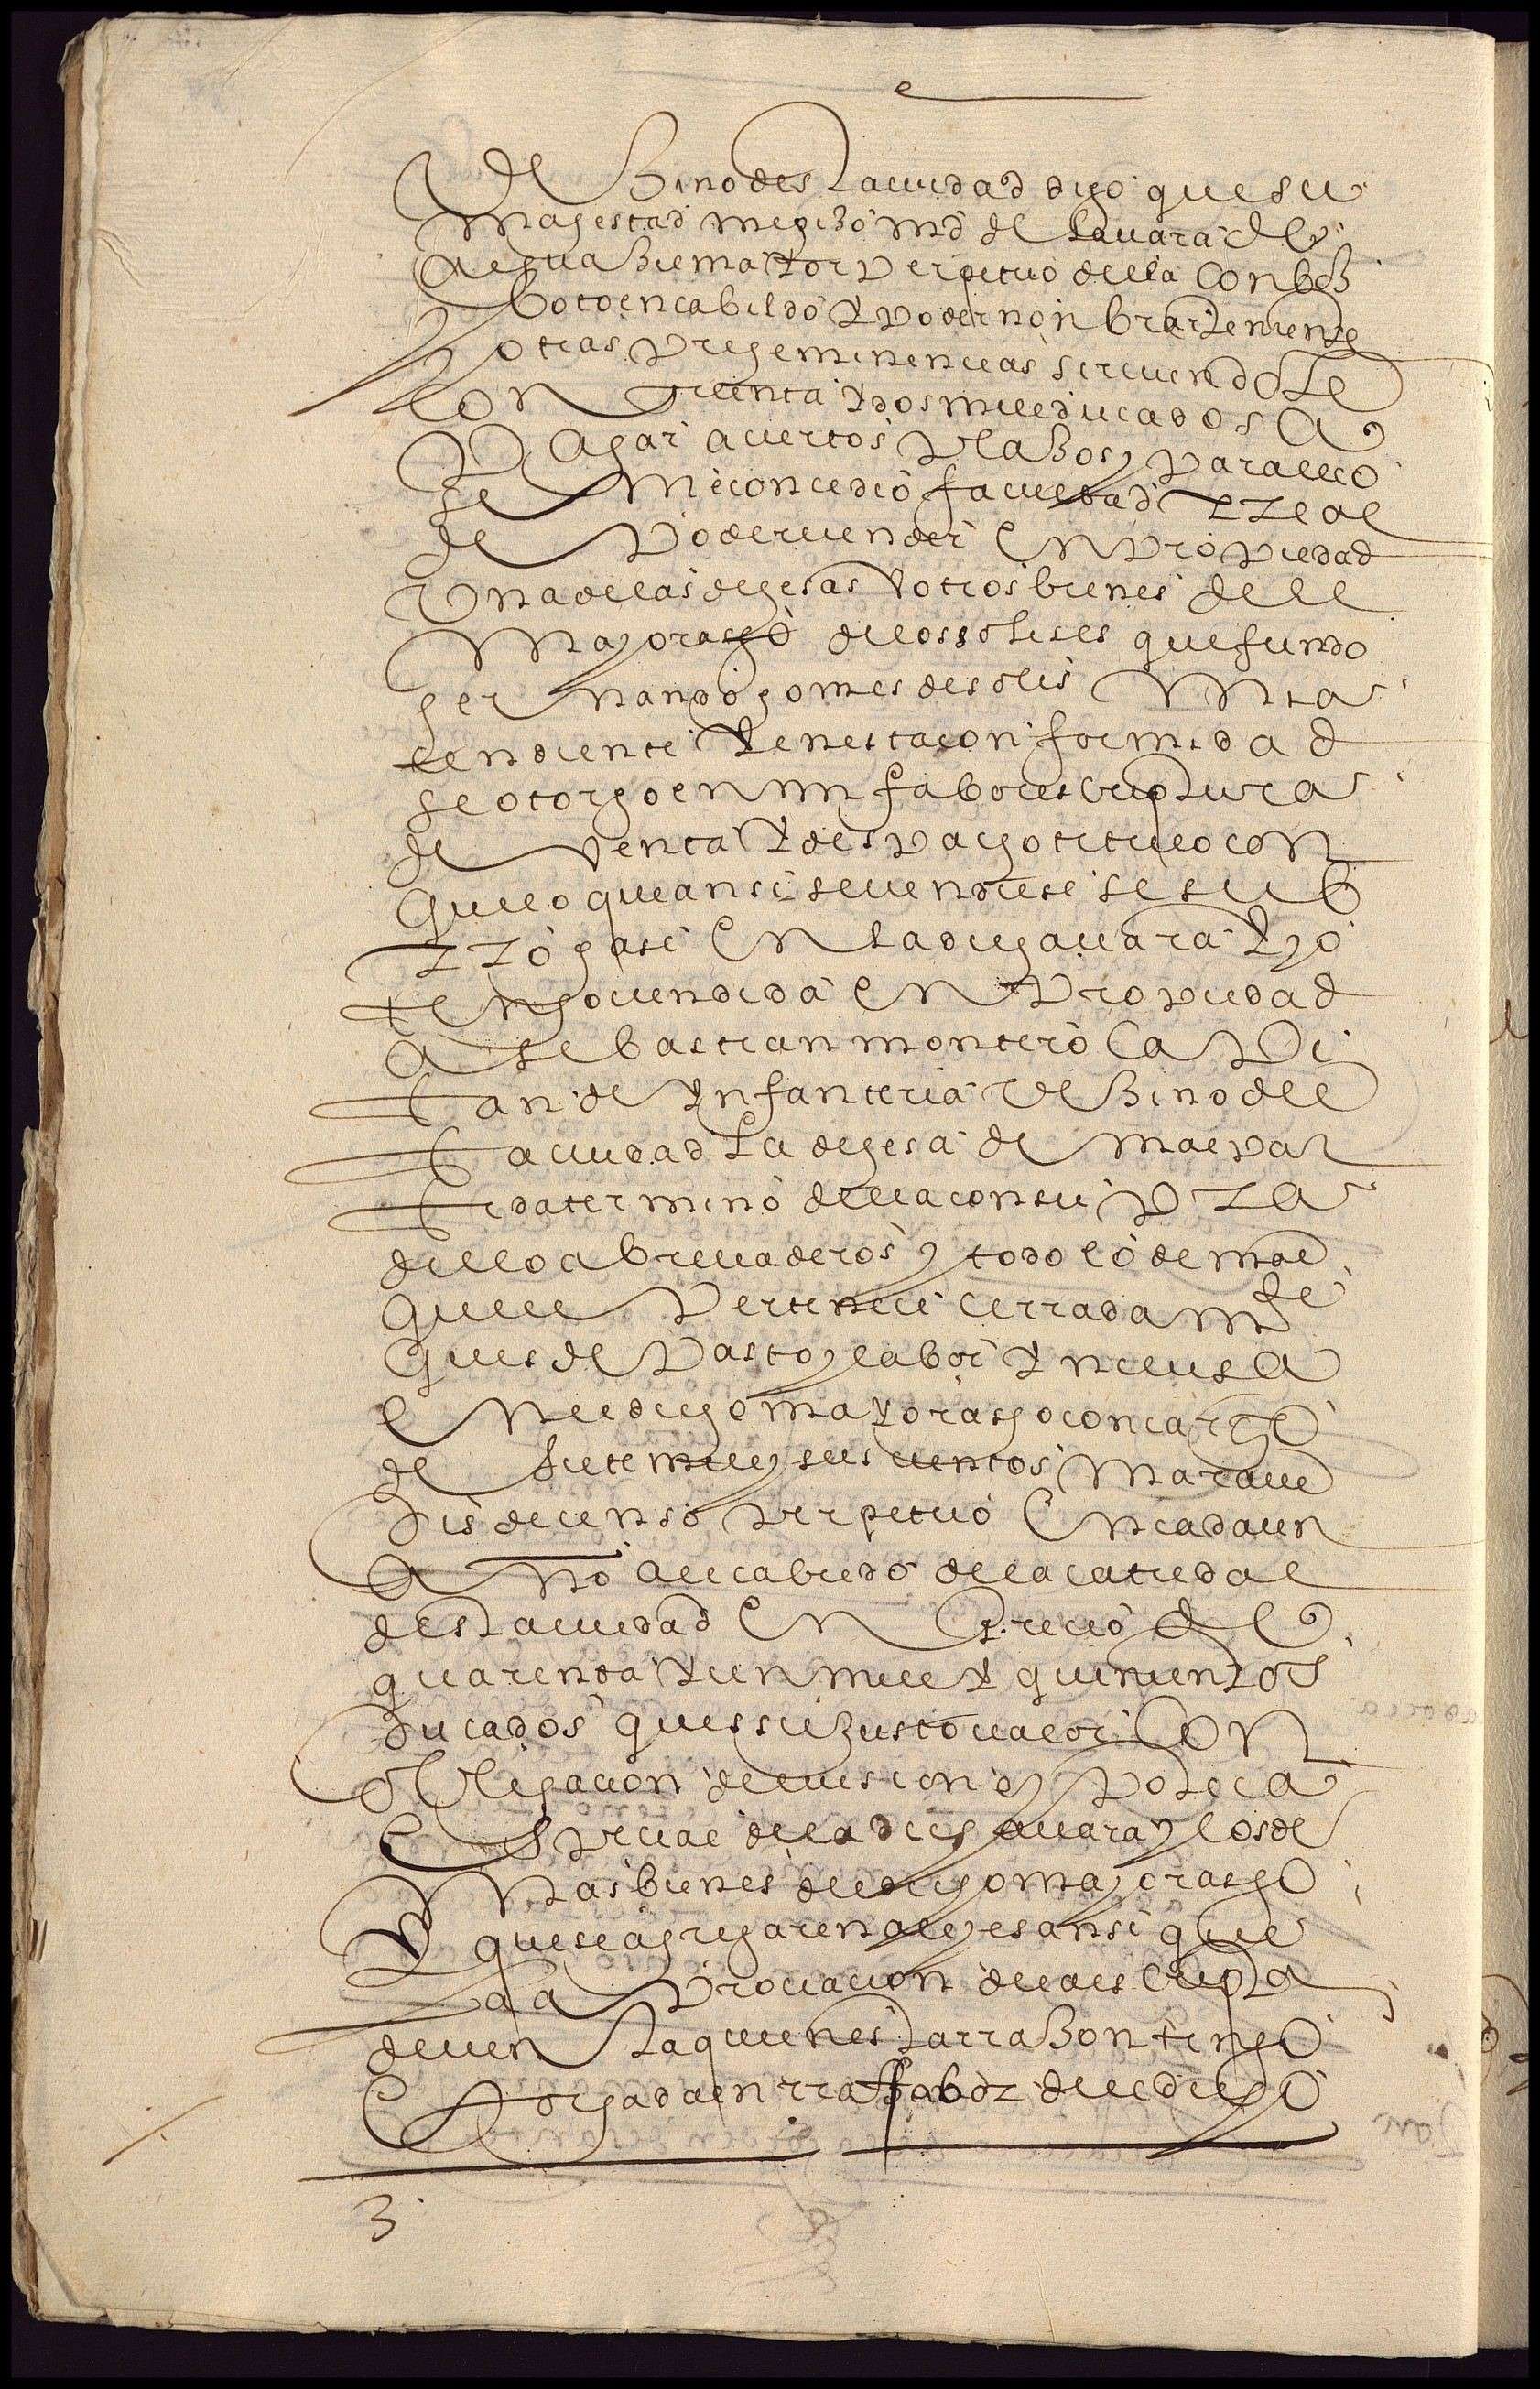 Vezino desta ciudad digo que su
magestad me hizo md de la vara de
alguazil maior perpetuo della con boz
y boto en cabildo y poder nonbrar teniente
y otras preheminencias sirviendole
con treinta y dos mill ducados a
pagar a ciertos plazos y para ello
se me concedio facultad rreal
de poder vender en propiedad
una de las dehesas y otros bienes del
mayorasgo de los solises que fundo
hernando gomes de solis mi a
cendiente y en esta conformidad
se otorgo en mi fabor escriptura
de venta y despacho titulo con
que lo que ansi se vendiese se sub
rrogase en la dicha vara y yo
tengo vendida en propiedad
a sebastian montero capi
tan de ynfanteria vezino de
la ciudad la dehesa de malpar
tida termino della con su pra
dillo abrevaderos y todo lo demas
que le pertenece cerradamte
que es de pasto y labor yncLusa
en el dicho mayorasgo con cargo
de siete mill y seiscientos marave
dis de censo perpetuo en cada un
año al cabildo de la catredal
desta ciudad en precio de
quarenta y un mill y quinientos
ducados ques su justo valor con
obligacion de evision y ypoteca
especial de la dicha vara y los de
mas bienes del dicho mayorasgo
y que se agregaren a el y es ansi que
la aprovacion de la escriptura
de venta que en esta rrazon tengo
otorgada en rra fabor del dicho
3